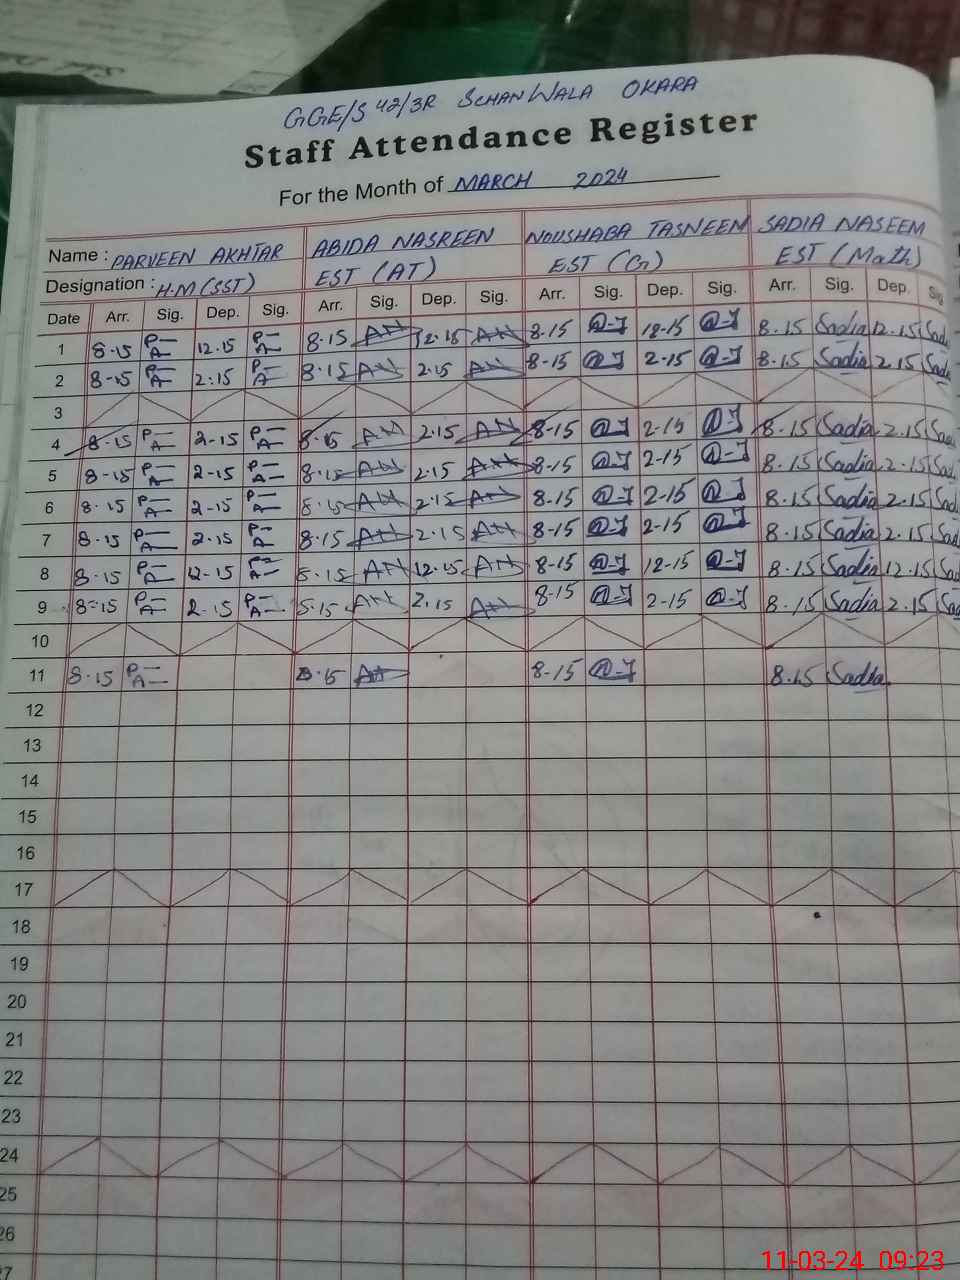 GGE/S 42/3R SCHANWALA OKARA
Staff Attendance Register
For the Month of MARCH 2024
Name : PARVEEN AKHTAR ABIDA NASREEN NOUSHABA TASNEEM SADIA NASEEM
Designation : H.M (SST) EST (AT) EST (G) EST (Math)
Date Arr. Sig. Dep. Sig. Arr. Sig. Dep. Sig. Arr. Sig. Dep. Sig. Arr. Sig. Dep. Sig
1 8-15 P A 12.15 P A 8.15 AN 12.15 AN 8.15 18-15 8.15 Sadia 12.15 Sadi
2 8-15 P A 2.15 P A 8.15 AN 2.15 AN 8-15 2-15 8.15 Sadia 2.15 Sad
3
4 8-15 P A 2-15 P A 8.15 AN 2.15 AN 8-15 2-15 8.15 Sadia 2.15 Sad
5 8-15 P A 2-15 P A 8.15 AN 2.15 AN 8-15 2-15 8.15 Sadia 2.15 Sad
6 8.15 P A 2-15 P A 8.15 AN 2.15 AN 8-15 2-15 8.15 Sadia 2.15 Sad
7 8.15 P A 2.15 P A 8.15 AN 2.15 AN 8-15 2-15 8.15 Sadia 2.15 Sad
8 8.15 P A 12-15 P A 8.15 AN 12.15 AN 8-15 12-15 8.15 Sadia 12.15 Sad
9 8-15 P A 2.15 P A 8.15 AN 2.15 AN 8-15 2-15 8.15 Sadia 2.15 Sad
10
11 8.15 P A 8.15 AN 8-15 8.15 Sadia
12
13
14
15
16
17
18
19
20
21
22
23
24
25
26
27
11-03-24 09:23